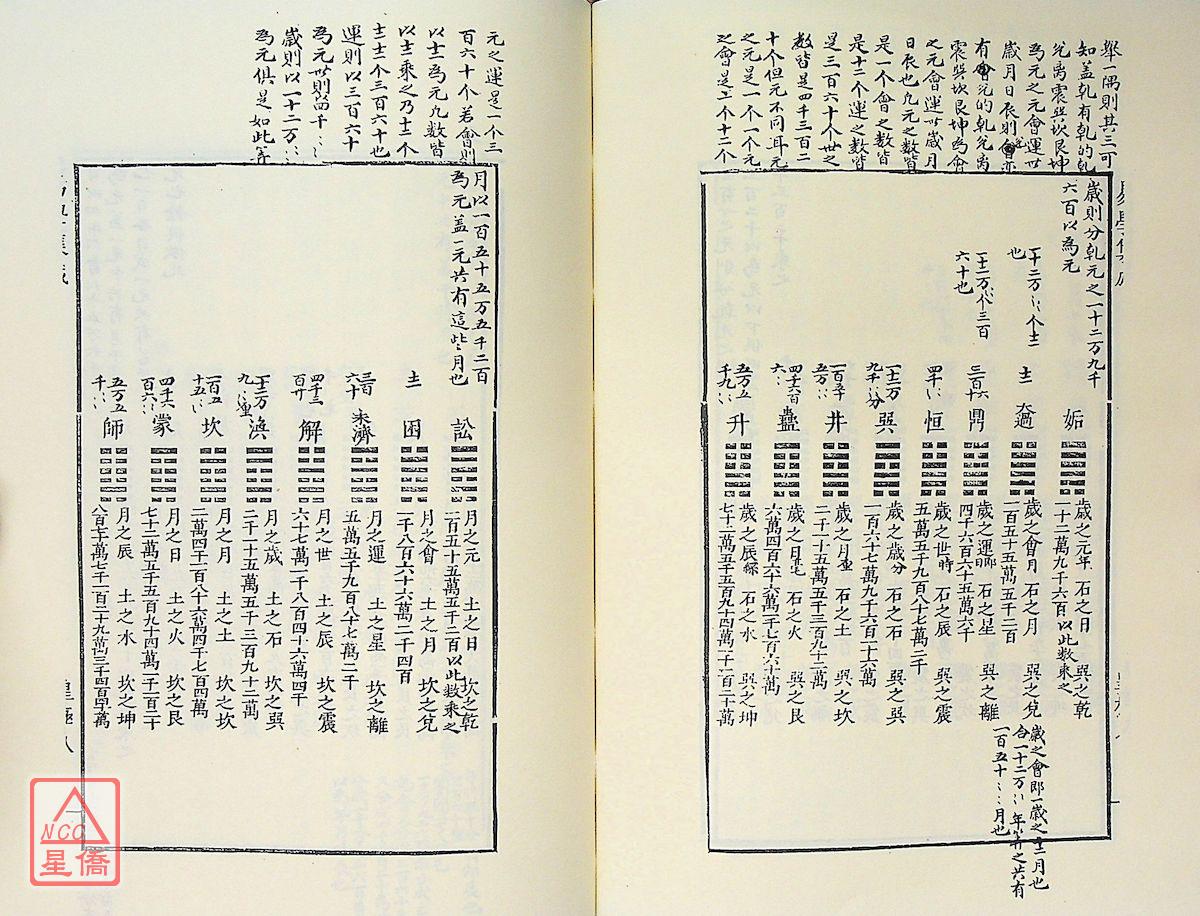 舉一隅則其三可
知蓋乾有乾的乾
兌离震巽坎艮坤
為元之元會運世
歲月日辰則會亦
有會元的乾兌离
震巽坎艮坤為會
之元會運世歲月
日辰也凡元之數皆
是一個會之數皆
是十二个運之數皆
是三百六十个世之
數皆是四千三百二
十个但元不同耳元
之元是一个一个元
之會是
个十二个
歲則分乾元之一十二万九千
六百以為元
也
六十也
姤
歲之元年 石之日 巽之乾
一十二萬九千六百以此数乘之
歲之會月 石之月 巽之兌
一百五十五萬五千二百
歲之會即一歲之十二月也
鼎
歲之運 石之星 巽之離
四千六百六十五萬六千
恒
歲之世時 石之辰 巽之震
五萬五千九百八十七萬二千
巽
歲之歲分 石之石 巽之巽
一百六十七萬九千六百一十六萬
井
歲之月 石之土 巽之坎
二千一十五萬五千三百九十二萬
蠱
歲之日 石之火 巽之艮
六萬四百六十六萬二千七百六萬
升
歲之辰 石之水 巽之坤
七十二萬五千五百九十四萬一千一百二十萬
元之運是一个三
百六十个若會則
以十二為元九數皆
以十二乘之乃十二个
十二十二个三百六十也
運則以三百六十
為元世則四千
歲則以一十二万
為元俱是如此等
月以一百五十五万五千二百
為元蓋一元共有這些月也
訟
月之元 土之日 坎之乾
一百五十五萬五千二百以此数乘之
困
月之會 土之月 坎之兌
一千八百六十六萬二千四百
三百六十
未濟
月之運 土之星 坎之離
五萬五千九百八十七萬二千
解
月之世 土之辰 坎之震
六十七萬一千八百四十六萬四千
渙
月之歲 土之石 坎之巽
二千一十五萬五千三百九十二萬
坎
月之月 土之土 坎之坎
二萬四千一百八十六萬四千七百四萬
蒙
月之日 土之火 坎之艮
七十二萬五千五百九十四萬一千一百二十
師
月之辰 土之水 坎之坤
八百七十萬七千一百二十九萬三千四百四十萬
NCC
星僑